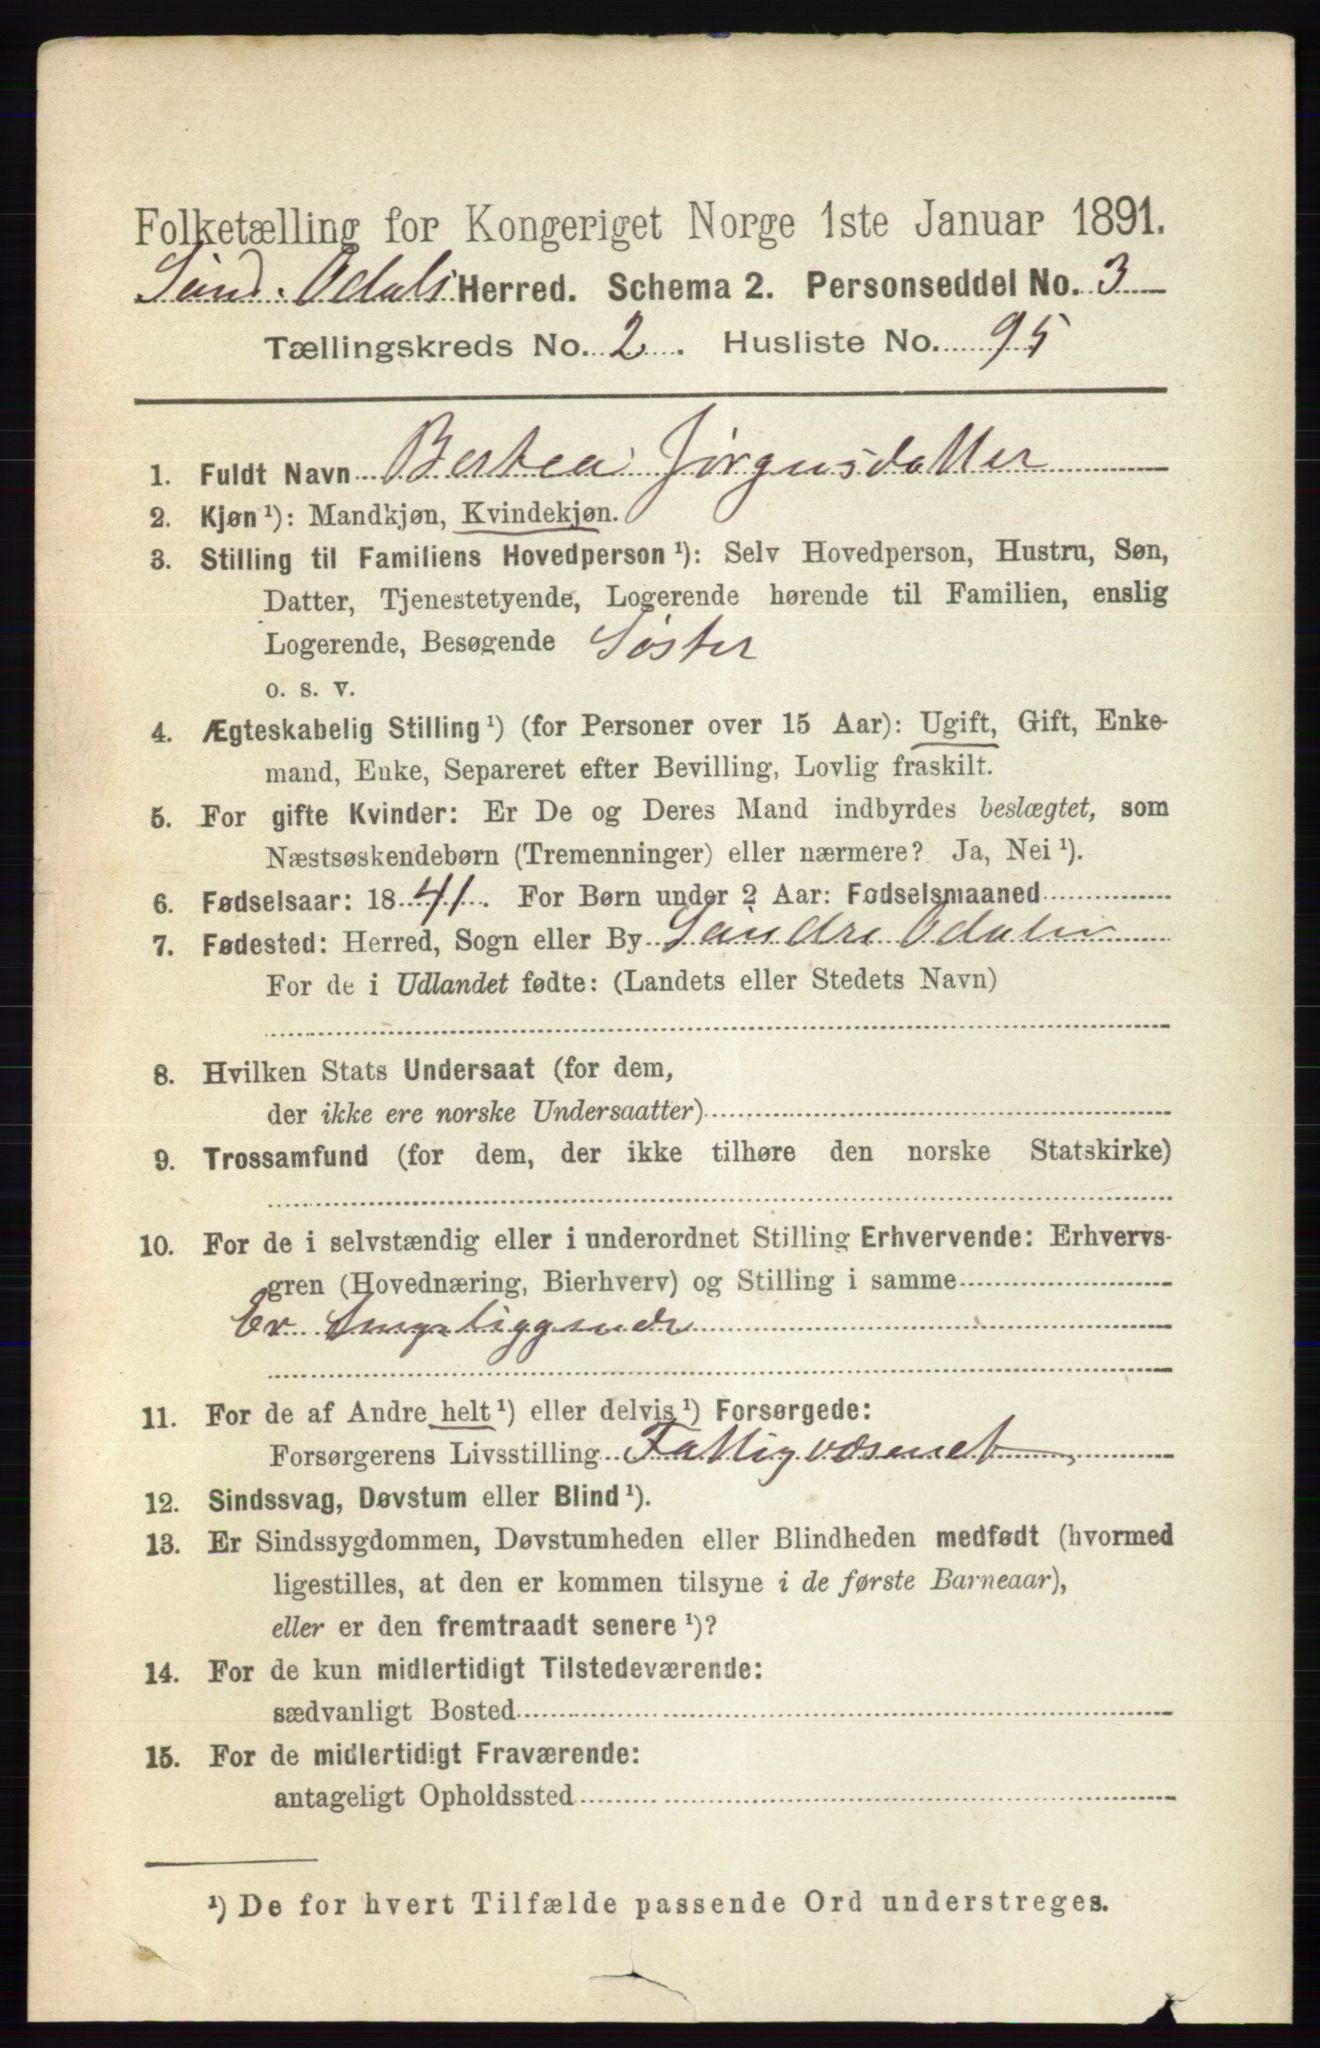 Folketælling for Kongeriget Norge 1ste Januar 1891.
Sønd. Odals Herred. Schema 2. Personseddel No. 3
Tællingskreds No. 2. Husliste No. 95
1. Fuldt Navn Bertea Jørgensdatter
2. Kjøn ¹): Mandkjøn, Kvindekjøn.
3. Stilling til Familiens Hovedperson ¹): Selv Hovedperson, Hustru, Søn,
Datter, Tjenestetyende, Logerende hørende til Familien, enslig
Logerende, Besøgende Søster
o. s. v.
4. Ægteskabelig Stilling ¹) (for Personer over 15 Aar): Ugift, Gift, Enke-
mand, Enke, Separeret efter Bevilling, Lovlig fraskilt.
5. For gifte Kvinder: Er De og Deres Mand indbyrdes beslægtet, som
Næstsøskendebørn (Tremenninger) eller nærmere? Ja, Nei ¹).
6. Fødselsaar: 1841. For Børn under 2 Aar: Fødselsmaaned
7. Fødested: Herred, Sogn eller By Søndre Odalen
For de i Udlandet fødte: (Landets eller Stedets Navn)
8. Hvilken Stats Undersaat (for dem,
der ikke ere norske Undersaatter)
9. Trossamfund (for dem, der ikke tilhøre den norske Statskirke)
10. For de i selvstændig eller i underordnet Stilling Erhvervende: Erhvervs-
gren (Hovednæring, Bierhverv) og Stilling i samme
Er Sengeliggende
11. For de af Andre helt ¹) eller delvis ¹) Forsørgede:
Forsørgerens Livsstilling Fattigvæsenet
12. Sindssvag, Døvstum eller Blind ¹).
13. Er Sindssygdommen, Døvstumheden eller Blindheden medfødt (hvormed
ligestilles, at den er kommen tilsyne i de første Barneaar),
eller er den fremtraadt senere ¹)?
14. For de kun midlertidigt Tilstedeværende:
sædvanligt Bosted
15. For de midlertidigt Fraværende:
antageligt Opholdssted
¹) De for hvert Tilfælde passende Ord understreges.